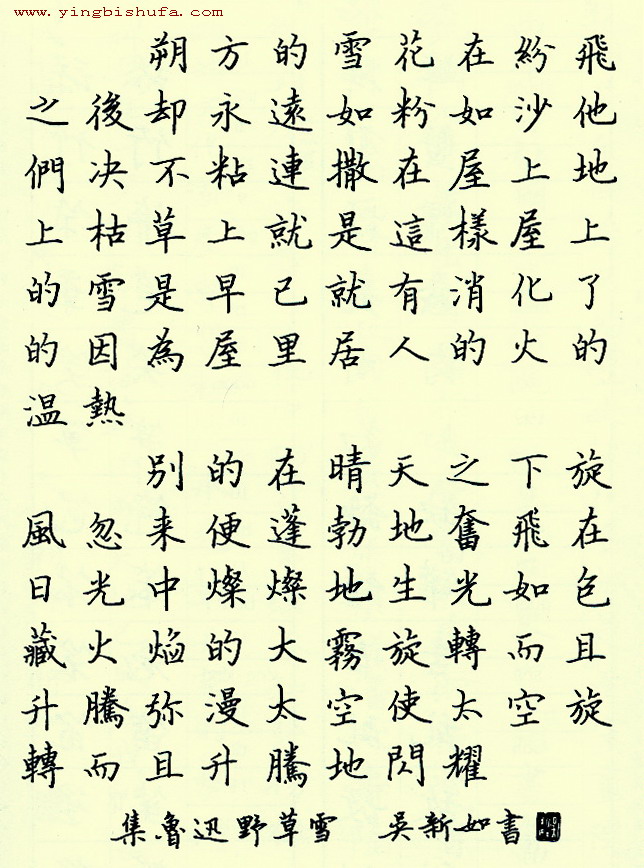 www.yingbishufa.com
朔方的雪花在紛飛
之後却永遠如粉如沙他
們决不粘連撒在屋上地
上枯草上就是這樣屋上
的雪是早已就有消化了
的因為屋里居人的火的
温熱
别的在晴天之下旋
風忽来便蓬勃地奮飛在
日光中燦燦地生光如包
藏火焰的大霧旋轉而且
升騰弥漫太空使太空旋
轉而且升騰地閃耀
集魯迅野草雪 吳新如書